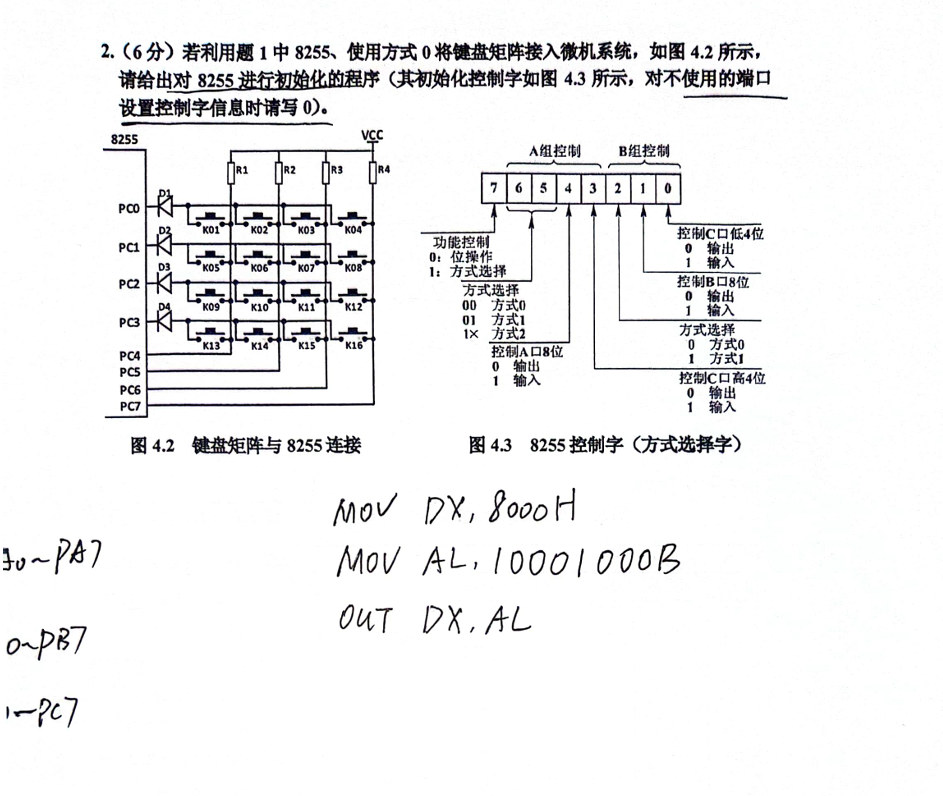 2.（6分）若利用题1中8255、使用方式0将键盘矩阵接入微机系统，如图4.2所示，
请给出对8255进行初始化的程序（其初始化控制字如图4.3所示，对不使用的端口
设置控制字信息时请写0）。
8255
VCC
R1 R2 R3 R4
D1
PC0
K01 K02 K03 K04
D2
PC1
K05 K06 K07 K08
D3
PC2
K09 K10 K11 K12
D4
PC3
K13 K14 K15 K16
PC4
PC5
PC6
PC7
图4.2 键盘矩阵与8255连接
A组控制 B组控制
7 6 5 4 3 2 1 0
功能控制
0：位操作
1：方式选择
方式选择
00 方式0
01 方式1
1× 方式2
控制A口8位
0 输出
1 输入
控制C口低4位
0 输出
1 输入
控制B口8位
0 输出
1 输入
方式选择
0 方式0
1 方式1
控制C口高4位
0 输出
1 输入
图4.3 8255控制字（方式选择字）
MOV DX, 8000H
MOV AL, 10001000B
OUT DX, AL
~PA7
0~PB7
~PC7